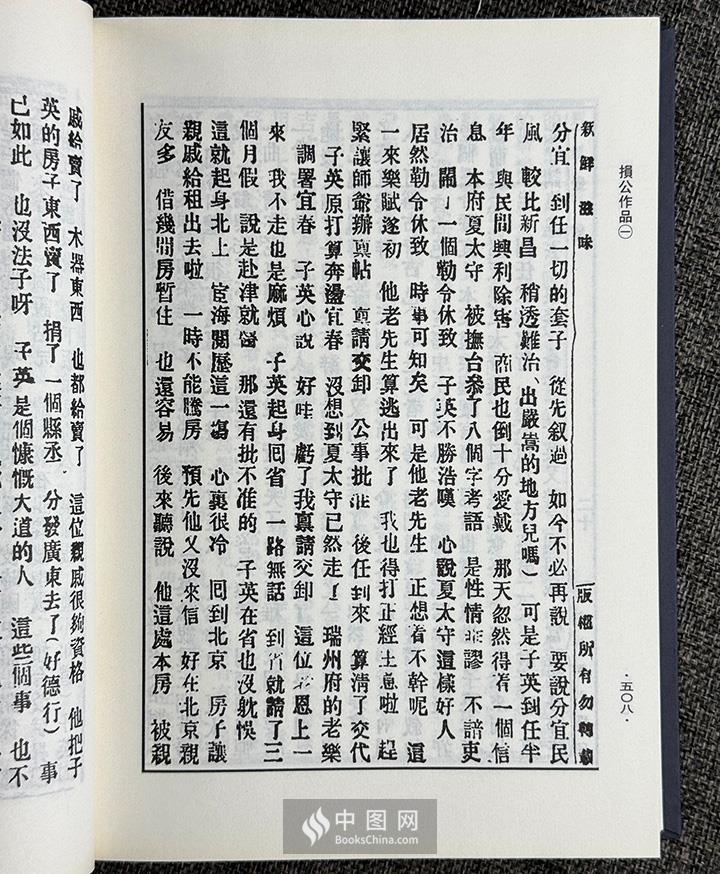 損公作品㊀
·五〇八·
新鮮滋味
版權所有勿轉載
分宜 到任一切的套子 從先叙過 如今不必再說 要說分宜民
風 較比新昌 稍透難治、出嚴嵩的地方兒嗎) 可是子英到任半
年 與民間興利除害 商民也倒十分愛戴 那天忽然得着一個信
息 本府夏太守 被撫台叅了八個字考語 是性情乖謬 不諳吏
治 鬧了一個勒令休致 子英不勝浩嘆 心說夏太守這樣好人
居然勒令休致 時事可知矣 可是他老先生 正想着不幹呢 這
一來樂賦遂初 他老先生算逃出來了 我也得打正經主意啦 趕
緊讓師爺辦稟帖 稟請交卸 公事批准 後任到來 算清了交代
子英原打算奔盪宜春 沒想到夏太守已然走了 瑞州府的老樂
調署宜春 子英心說 好哇 虧了我稟請交卸了 這位老恩上一
來 我不走也是麻煩 子英起身回省 一路無話 到省就請了三
個月假 說是赴津就醫 那還有批不准的 子英在省也沒躭悞
這就起身北上 宦海閱歷這一塲 心裏很冷 回到北京 房子讓
親戚給租出去啦 一時不能騰房 預先他又沒來信 好在北京親
友多 借幾間房暫住 也還容易 後來聽說 他這處本房 被親
戚給賣了 木器東西 也都給賣了 這位親戚很夠資格 他把子
英的房子東西賣了 捐了一個縣丞 分發廣東去了(好德行) 事
已如此 也沒法子呀 子英是個慷慨大道的人 這些個事 也不
中图网
BooksChina.com